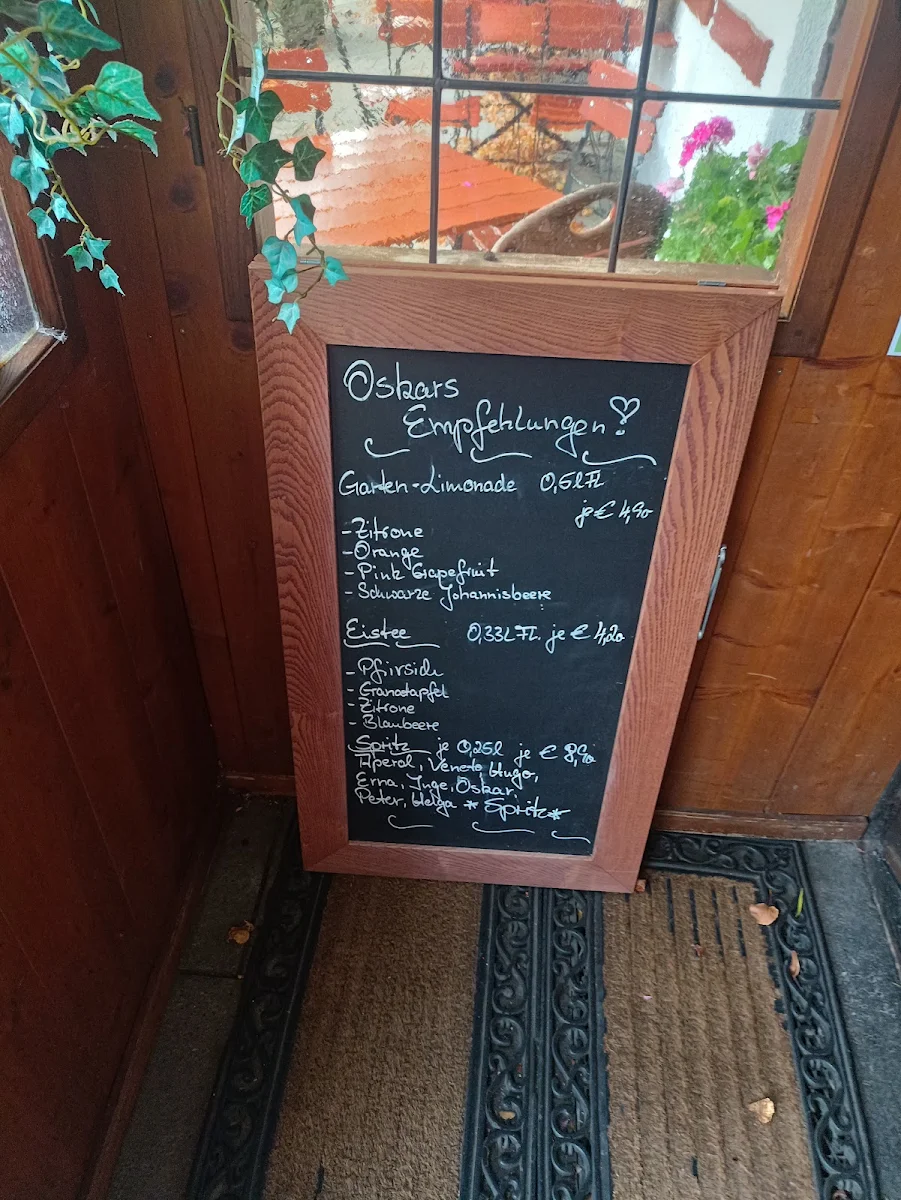 Oskars
Empfehlungen!
Garten-Limonade 0,5l Fl
je € 4,90
-Zitrone
-Orange
-Pink Grapefruit
-Schwarze Johannisbeere
Eistee 0,33l Fl. je € 4,20
-Pfirsich
-Granatapfel
-Zitrone
-Blaubeere
Spritz je 0,25l je € 8,90
Aperol, Veneto, Hugo,
Erna, Inge, Oskar,
Peter, Helga * Spritz*